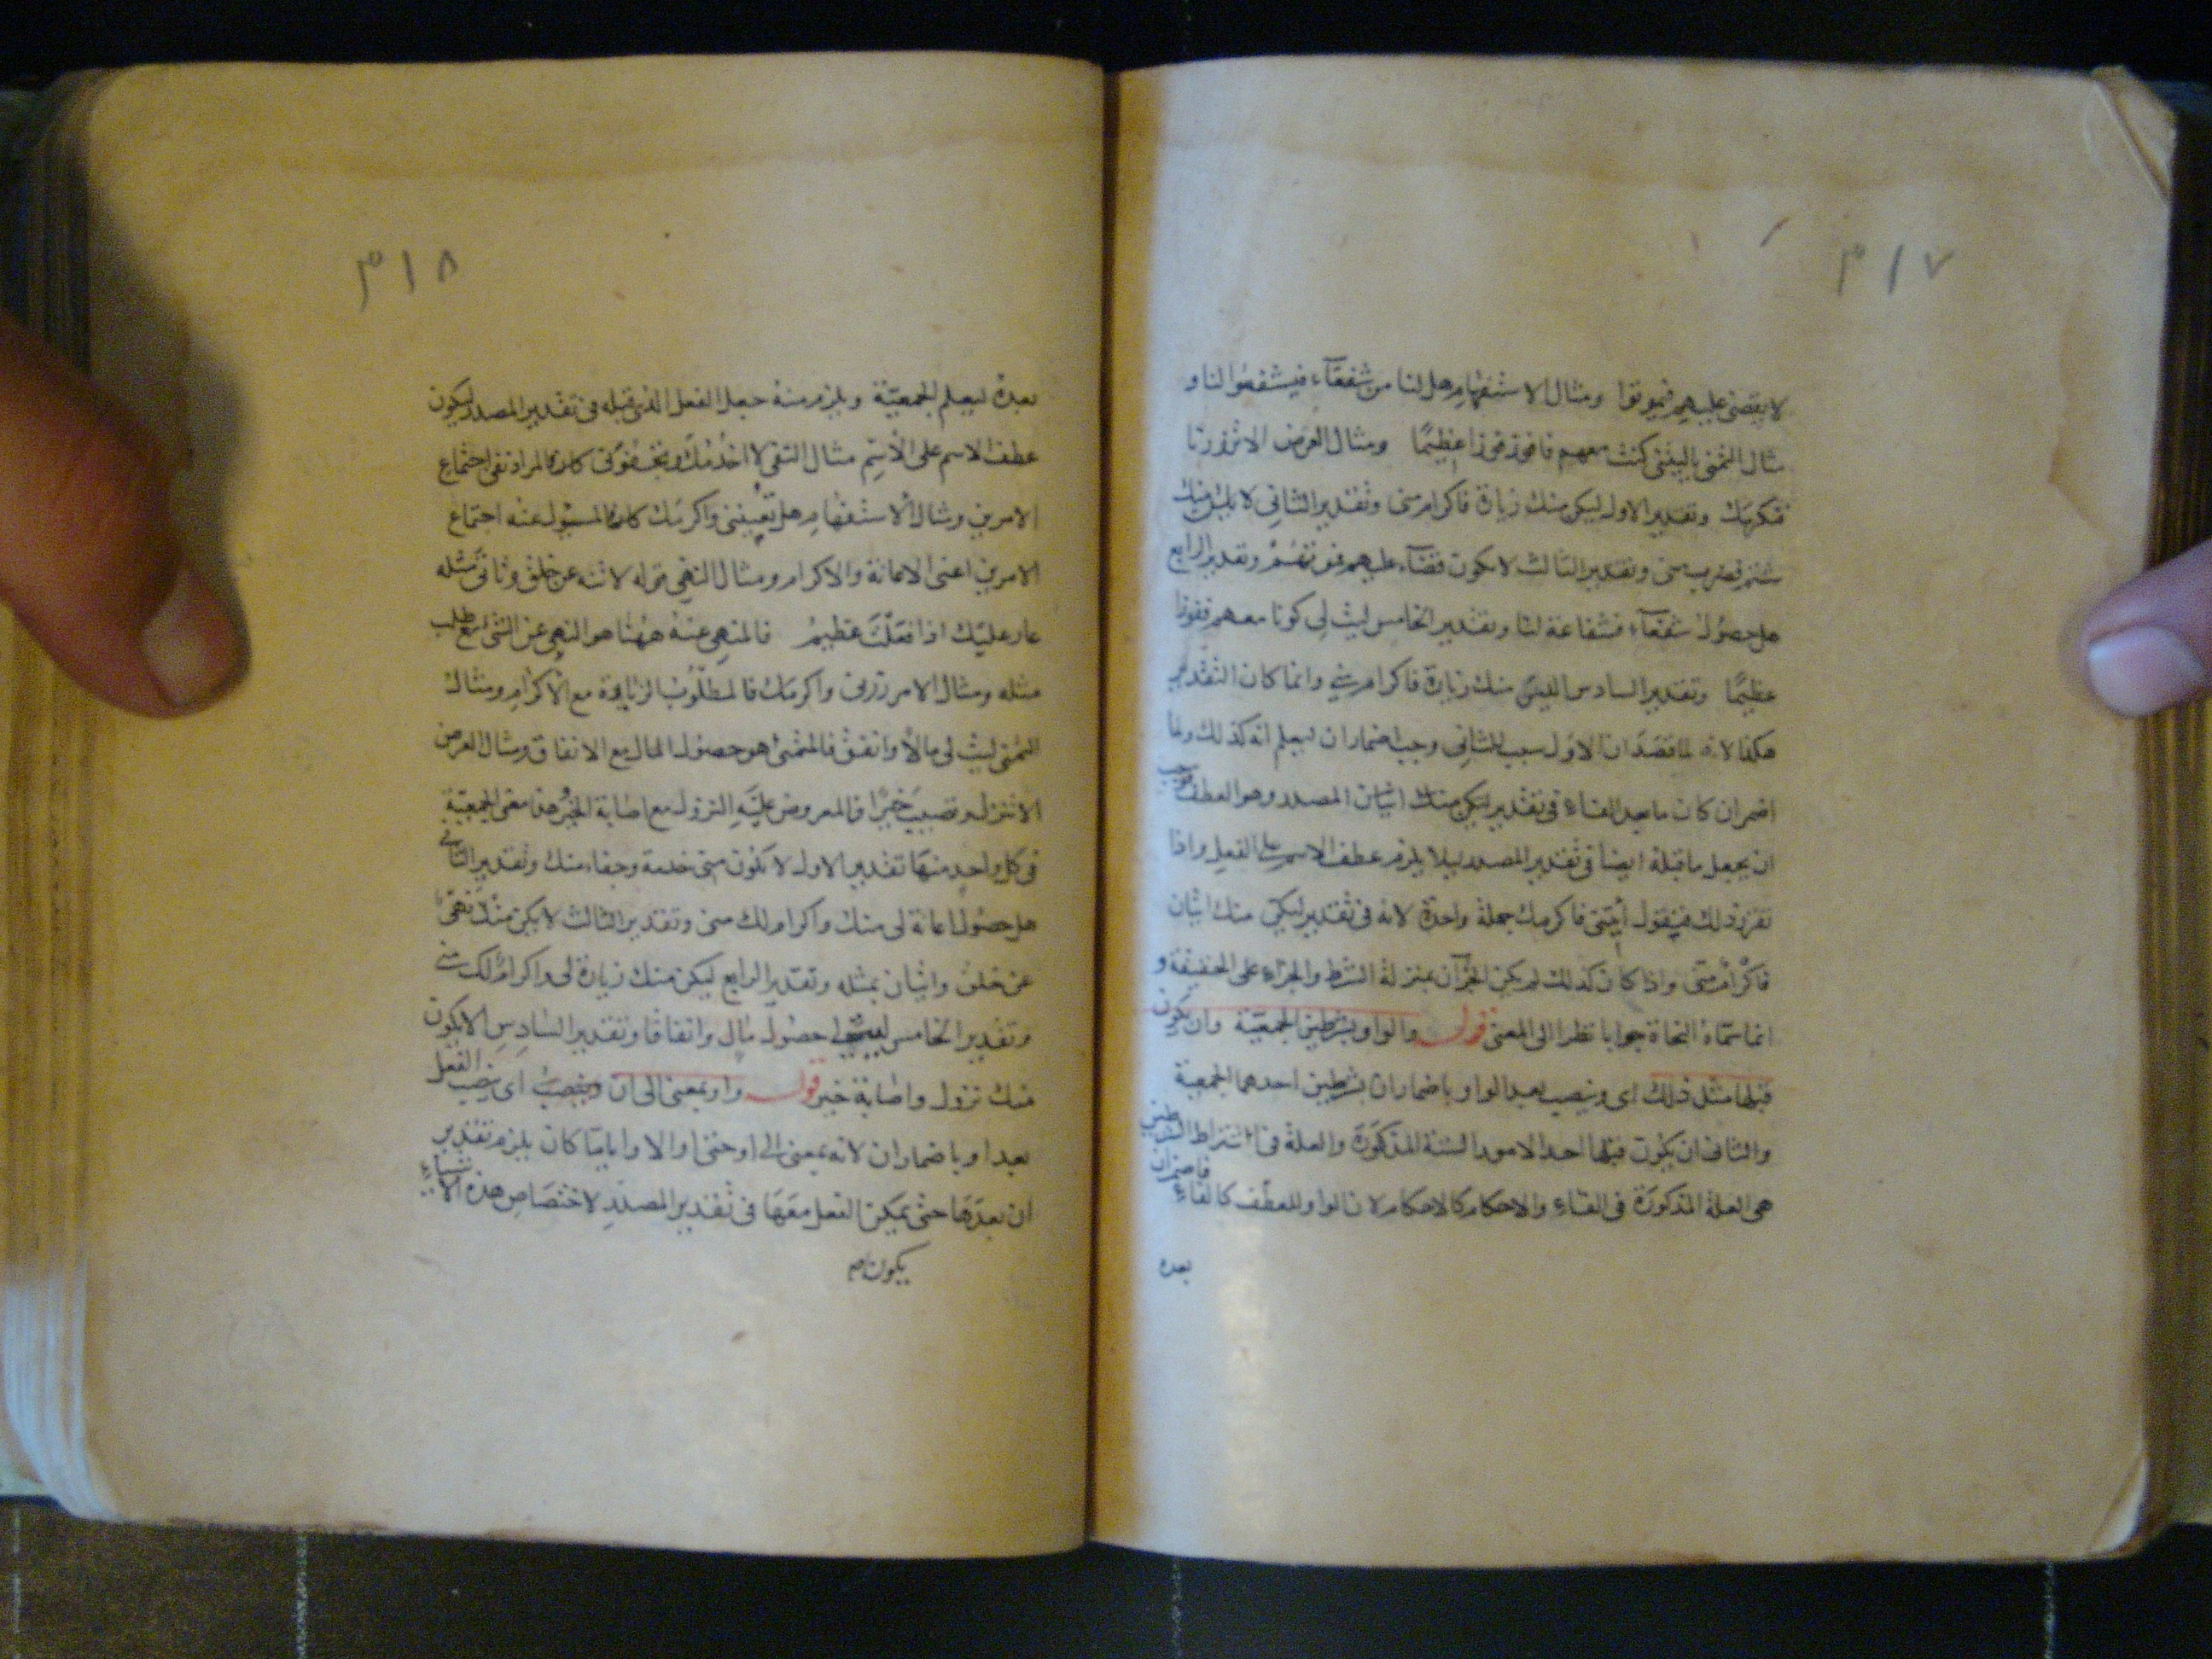 ٣١٧
لا يقضى عليهم فيموتوا ومثال الاستفهام هل لنا من شفعآء فيشفعوا لنا و
مثال التمنى ياليتنى كنت معهم فافوز فوزا عظيمًا ومثال العرض الا تزورنا
فنكرمك وتقدير الاول ليكن منك زيارة فاكرام منى وتقدير الثانى لا يكن منك
شتم فضرب منى وتقدير الثالث لا يكون قضآء عليهم فموتهم وتقدير الرابع
هل حصول شفعآء فشفاعة لنا وتقدير الخامس ليت لى كونا معهم ففوزا
عظيمًا وتقدير السادس اليكن منك زيارة فاكرام منى وانما كان التقدير
هكذا لانه لما قصد ان الاول سبب للثانى وجب اضمار ان ليعلم انه كذلك ولما
اضمر ان كان ما بعد الفاء فى تقدير ليكن منك اتيان المصدر وهو العطف فوجب
ان يجعل ما قبله ايضا فى تقدير المصدر ليلا يلزم عطف الاسم على الفعل واذا
تقرر ذلك فيقول أيتنى فاكرمك جملة واحدة لانه فى تقدير ليكن منك اتيان
فاكرام منى واذا كان كذلك لم يكن الجزآن بمنزلة الشرط والجزاء على الحقيقة و
انما سماه النحاة جوابا نظرا الى المعنى قوله والواو بشرطين الجمعية وان يكون
قبلها مثل ذلك اى وينصب بعد الواو باضمار ان بشرطين احدهما الجمعية
والثانى ان يكون قبلها احد الامور الستة المذكورة والعلة فى اشتراط الشرطين
هى العلة المذكورة فى الفاء والاحكام كالاحكام لان الواو للعطف كالفاء فاضمران
بعده
٣١٨
بعده ليعلم الجمعيّة ويلزم منه جعل الفعل الذى قبله فى تقدير المصدر ليكون
عطف الاسم على الاسم مثال النفى لا اخدمك وتجفونى كان المراد نفى اجتماع
الامرين ومثال الاستفهام هل تعيننى واكرمك كان المسؤل عنه اجتماع
الامرين اعنى الاعانة والاكرام ومثال النهى قوله لا تنه عن خلق وتاتى مثله
عار عليك اذا فعلت عظيم فالمنهى عنه ههنا هو النهى عن الشئ مع طلب
مثله ومثال الامر زرنى واكرمك فالمطلوب الزيارة مع الاكرام ومثال
التمنى ليت لى مالا وانفق فالمتمنى هو حصول المال مع الانفاق ومثال العرض
الا تنزل وتصيب خيرًا فالمعروض عليه النزول مع اصابة الخير هذا معنى الجمعية
فى كل واحد منها تقدير الاول لا يكون منى خدمة وجفاء منك وتقدير الثانى
هل حصول اعانة لى منك واكرام لك منى وتقدير الثالث لا يكن منك نهى
عن خلق واتيان بمثله وتقدير الرابع ليكن منك زيارة لى واكرام لك منى
وتقدير الخامس ليت لى حصول مال وانفاقا وتقدير السادس الا يكون
منك نزول واصابة خير قوله واو بمعنى الى ان وينصب اى ينصب الفعل
بعد او باضمار ان لانه بمعنى الى او حتى او الا واياما كان يلزم تقدير
ان بعدها حتى يمكن الفعل معها فى تقدير المصدر لاختصاص هذه الاشياء